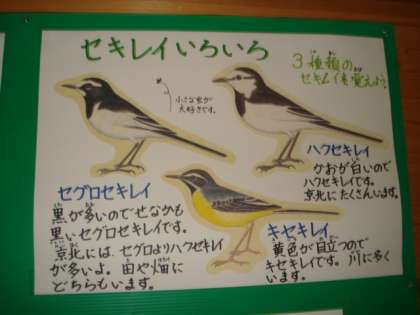 セキレイいろいろ
3種類の
セキレイを覚えよう!
小さな虫が
大好きです。
ハクセキレイ
かおが白いので
ハクセキレイです。
京北にたくさんいます。
セグロセキレイ
黒が多いのでせなかも
黒いセグロセキレイです。
京北には、セグロよりハクセキレイ
が多いよ。田や畑に
どちらもいます。
キセキレイ
黄色が目立つので
キセキレイです。川に多く
います。